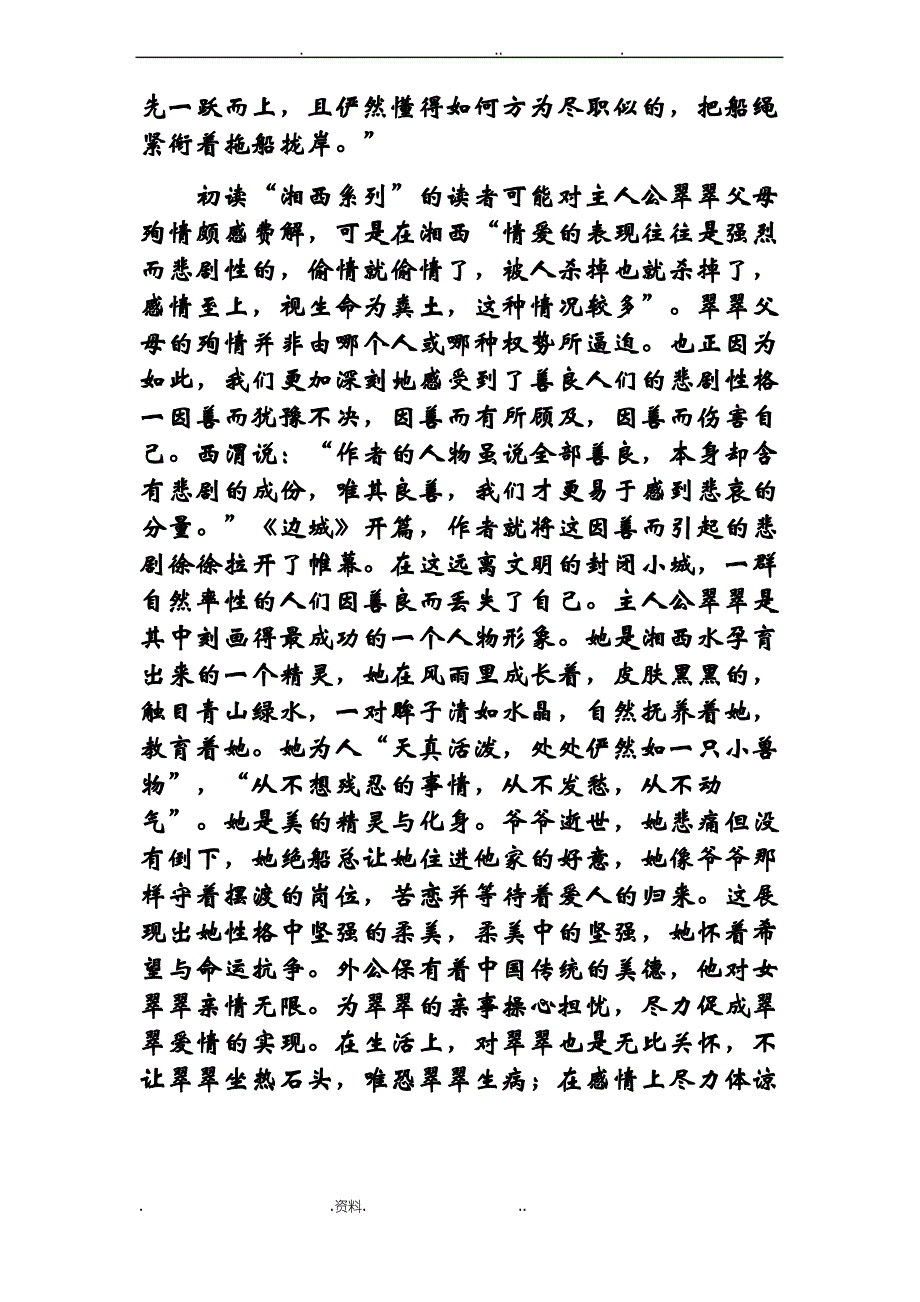 先一跃而上，且俨然懂得如何方为尽职似的，把船绳
紧衔着拖船拢岸。”
初读“湘西系列”的读者可能对主人公翠翠父母
殉情颇感费解，可是在湘西“情爱的表现往往是强烈
而悲剧性的，偷情就偷情了，被人杀掉也就杀掉了，
感情至上，视生命为粪土，这种情况较多”。翠翠父
母的殉情并非由哪个人或哪种权势所逼迫。也正因为
如此，我们更加深刻地感受到了善良人们的悲剧性格
一因善而犹豫不决，因善而有所顾及，因善而伤害自
己。西渭说：“作者的人物虽说全部善良，本身却含
有悲剧的成份，唯其良善，我们才更易于感到悲哀的
分量。”《边城》开篇，作者就将这因善而引起的悲
剧徐徐拉开了帷幕。在这远离文明的封闭小城，一群
自然率性的人们因善良而丢失了自己。主人公翠翠是
其中刻画得最成功的一个人物形象。她是湘西水孕育
出来的一个精灵，她在风雨里成长着，皮肤黑黑的，
触目青山绿水，一对眸子清如水晶，自然抚养着她，
教育着她。她为人“天真活泼，处处俨然如一只小兽
物”，“从不想残忍的事情，从不发愁，从不动
气”。她是美的精灵与化身。爷爷逝世，她悲痛但没
有倒下，她绝船总让她住进他家的好意，她像爷爷那
样守着摆渡的岗位，苦恋并等待着爱人的归来。这展
现出她性格中坚强的柔美，柔美中的坚强，她怀着希
望与命运抗争。外公保有着中国传统的美德，他对女
翠翠亲情无限。为翠翠的亲事操心担忧，尽力促成翠
翠爱情的实现。在生活上，对翠翠也是无比关怀，不
让翠翠坐热石头，唯恐翠翠生病；在感情上尽力体谅
. .资料. ..